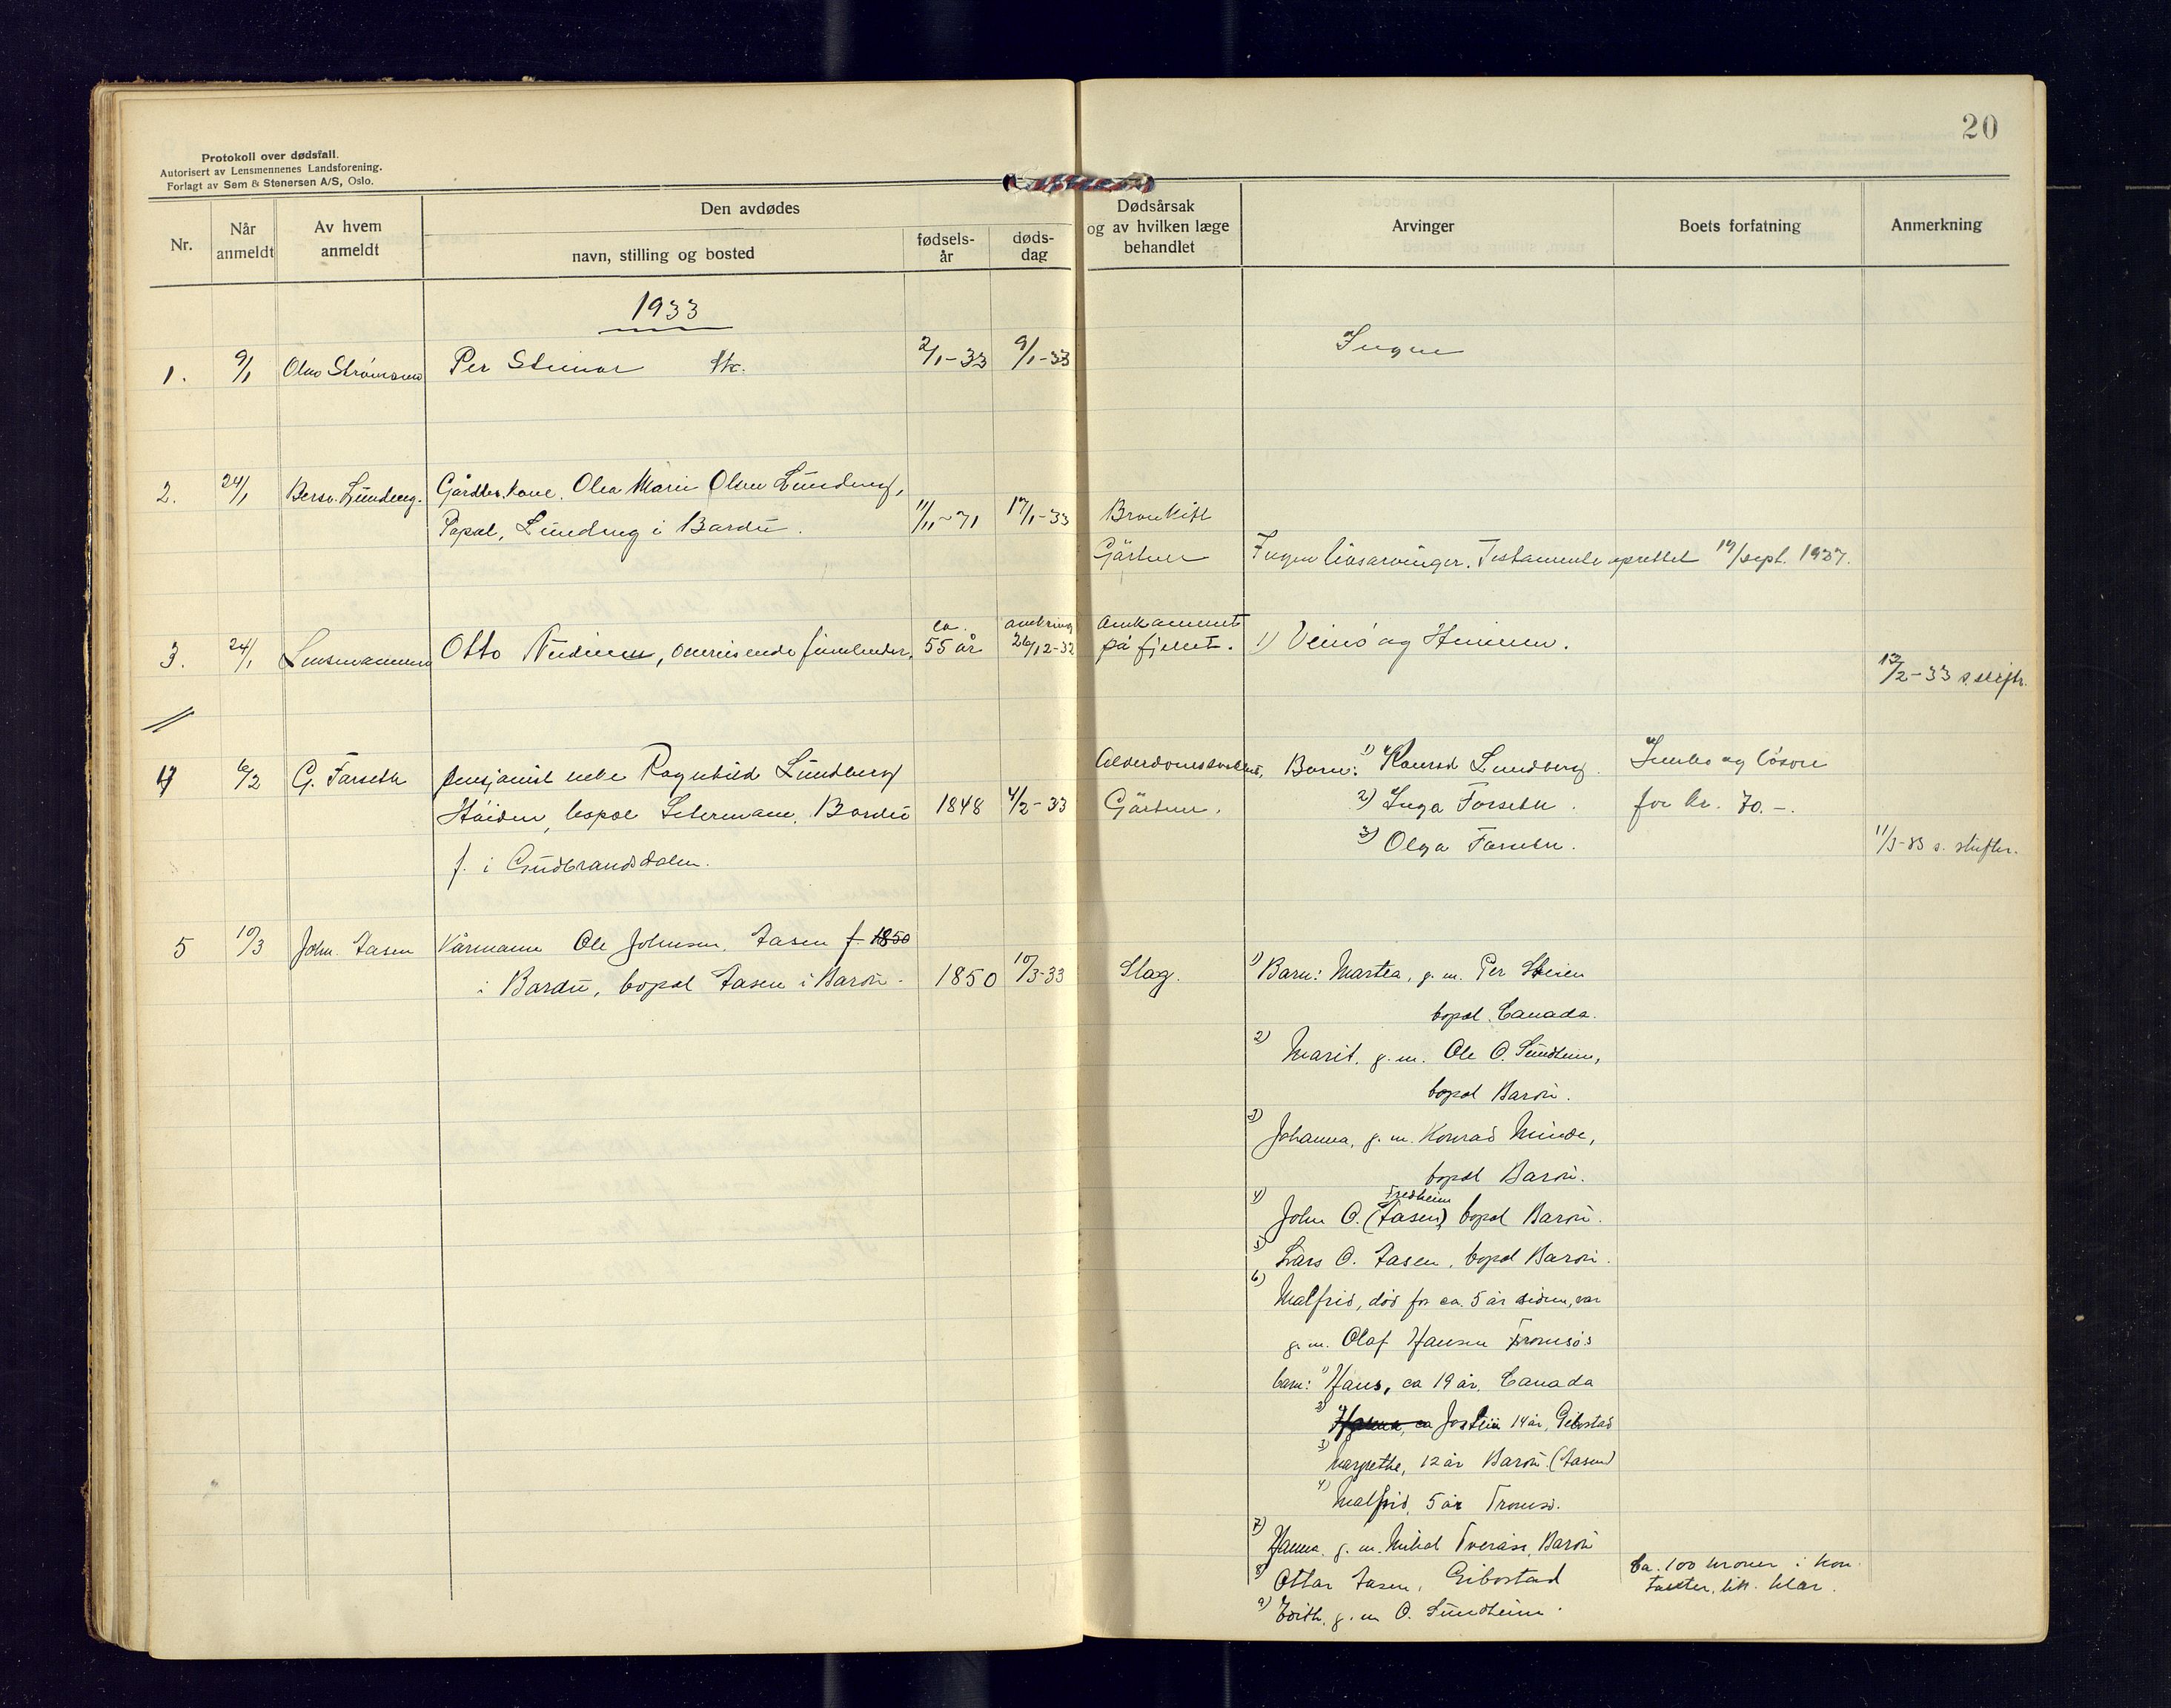 20
Protokoll over dødsfall.
Autorisert av Lensmennenes Landsforening.
Forlagt av Sem & Stenersen A/S, Oslo.
Nr.
Når anmeldt
Av hvem anmeldt
Den avdødes
navn, stilling og bosted
fødsels-år
døds-dag
Dødsårsak og av hvilken læge behandlet
Arvinger
Boets forfatning
Anmerkning
1933
1. 9/1 Per Steinar 2/1-33 9/1-33 Ingen
2. 24/1 Bersv. Lundeng. Gårdbr.kone. Olea Marie Olsen Lundeng,
Bopæl, Lundeng i Bardu. 11/11-71 17/1-33 Bronkitt
Gärtner Ingen livsarvinger. Testamente oprettet 19/sept. 1927.
3. 24/1 Lensmannen Otto omreisende finnlender, ca. 55 år omkring 26/12-32 Omkommet
på fjellet. 1) Veinö og Heimen.
13/2-33 s. skifter.
4 6/2 G. Fosseth pensjonist enke Ragnhild Lundberg
Høiden, bopæl Setermoen, Bardu 1848 4/2-33 Alderdomssvakhet,
Gärtner.
f. i Gudbrandsdalen.
Barn: 1) Konrad Lundberg.
2) Inga Fosseth.
3) Olga Fosseth.
Innbo og løsøre
for kr. 70.-.
11/3-33 s. skifter.
5 10/3 John Jasen Kårmann Ole Johnsen Jasen f. 1850
i Bardu, bopæl Jasen i Bardu. 1850 10/3-33 Slag.
1) Barn: Martea, g.m. Per Steien
bopæl Canada.
2) Marit, g.m. Ole O. Sundheim,
bopæl Bardu.
3) Johanna, g.m. Konrad Minde,
bopæl Bardu.
Fredheim
4) John O. (Jasen) bopæl Bardu.
5) Lars O. Jasen, bopæl Bardu.
6) Malfrid, död for ca. 5 år siden, var
g.m. Olaf Hansen Tromsö's
barn: 1) Hans, ca 19 år, Canada
2) Hanna, ca Jostein 14 år, Gibostad
3) Margrethe, 12 år Bardu. (Jasen)
4) Malfrid, 5 år Tromsö.
7) Hanna g.m. Mikal Tveraas, Bardu
8) Ottar Jasen, Gibostad
9) Edith, g.m. O. Sundheim.
Ca. 100 kroner i kon-
tanter, lik. klar.